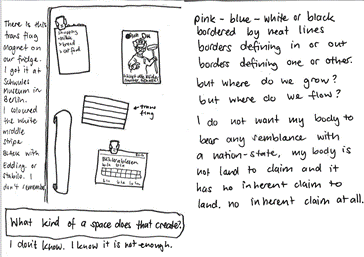 There is this
trans flag
magnet on
our fridge.
I got it at
Schwules
Museum in
Berlin.
I coloured
the white
middle
stripe
black with
Edding or
Stabilo. I
don't remember.
Shopping
bread
cat food
trans
flag
What kind of a space does that create?
I don't know. I know it is not enough.
pink - blue - white or black
bordered by neat lines
borders defining in or out
borders defining one or other.
but where do we grow?
but where do we flow?
I do not want my body to
bear any semblance with
a nation-state, my body is
not land to claim and it
has no inherent claim to
land. no inherent claim at all.